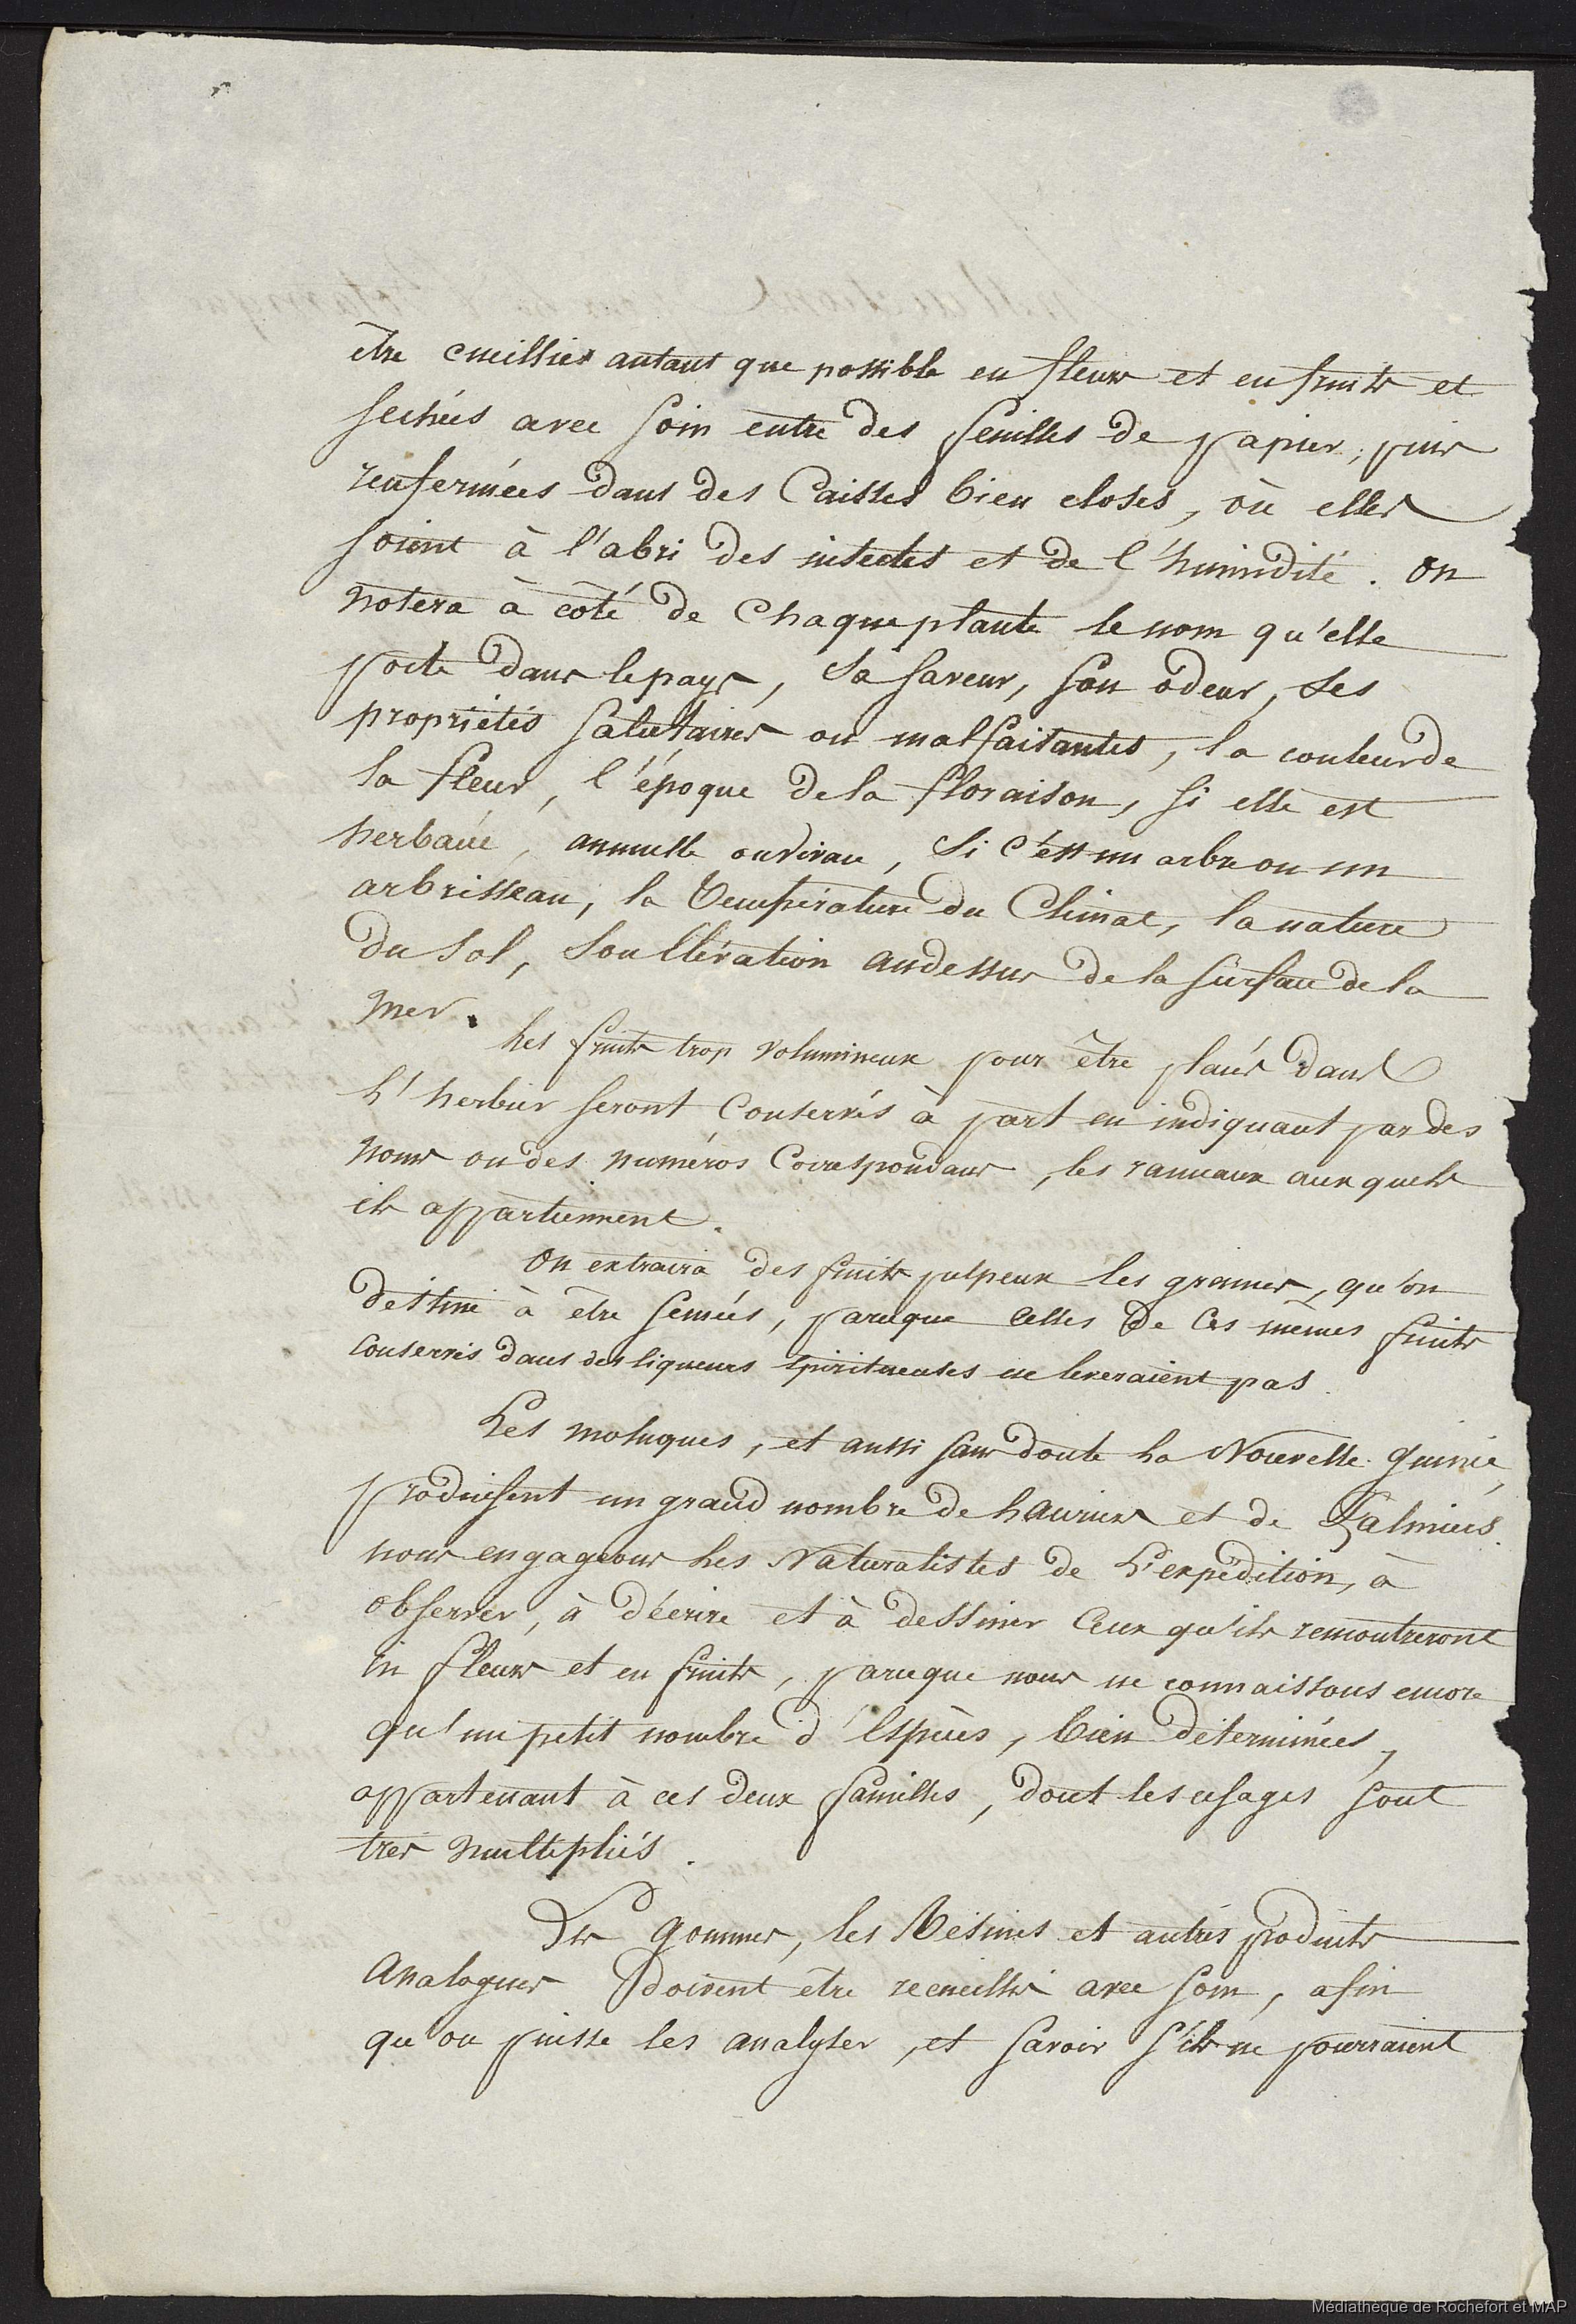 être cueillies autant que possible en fleurs et en fruits et
sechées avec soin entre des feuilles de papier, puis
renfermées dans des Caisses bien closes, où elles
soient à l'abri des insectes et de l'humidité. on
notera à côté de Chaque plante le nom qu'elle
porte dans le pays, sa saveur, son odeur, ses
propriétés salutaires ou malfaisantes, la couleur de
la fleur, l'époque de la floraison, si elle est
herbacée, annuelle ou vivace, si c'est un arbre ou un
arbrisseau, la température du Climat, la nature
du sol, son élévation audessus de la surface de la
mer.
les fruits trop volumineux pour être placés dans
l'herbier seront Conservés à part en indiquant par des
noms ou des numéros Correspondans, les rameaux auxquels
ils appartiennent.
On extraira des fruits pulpeux les graines, qu'on
destine à être semées, parceque celles de Ces mêmes fruits
conservés dans des liqueurs spiritueuses ne leveraient pas.
Les moluques, et aussi sans doute la Nouvelle guinée,
produisent un grand nombre de lauriers et de Palmiers.
nous engageons les Naturalistes de L'expédition, à
observer, à décrire et à dessiner Ceux qu'ils rencontreront
en fleurs et en fruits, parceque nous ne connaissons encore
qu'un petit nombre d'espèces, bien déterminées,
appartenant à ces deux familles, dont les usages sont
très multipliés.
Les gommes, les Résines et autres produits
analogues doivent être recueillis avec soin, afin
qu'on puisse les analyser, et savoir s'ils ne pourraient
Médiathèque de Rochefort et MAP